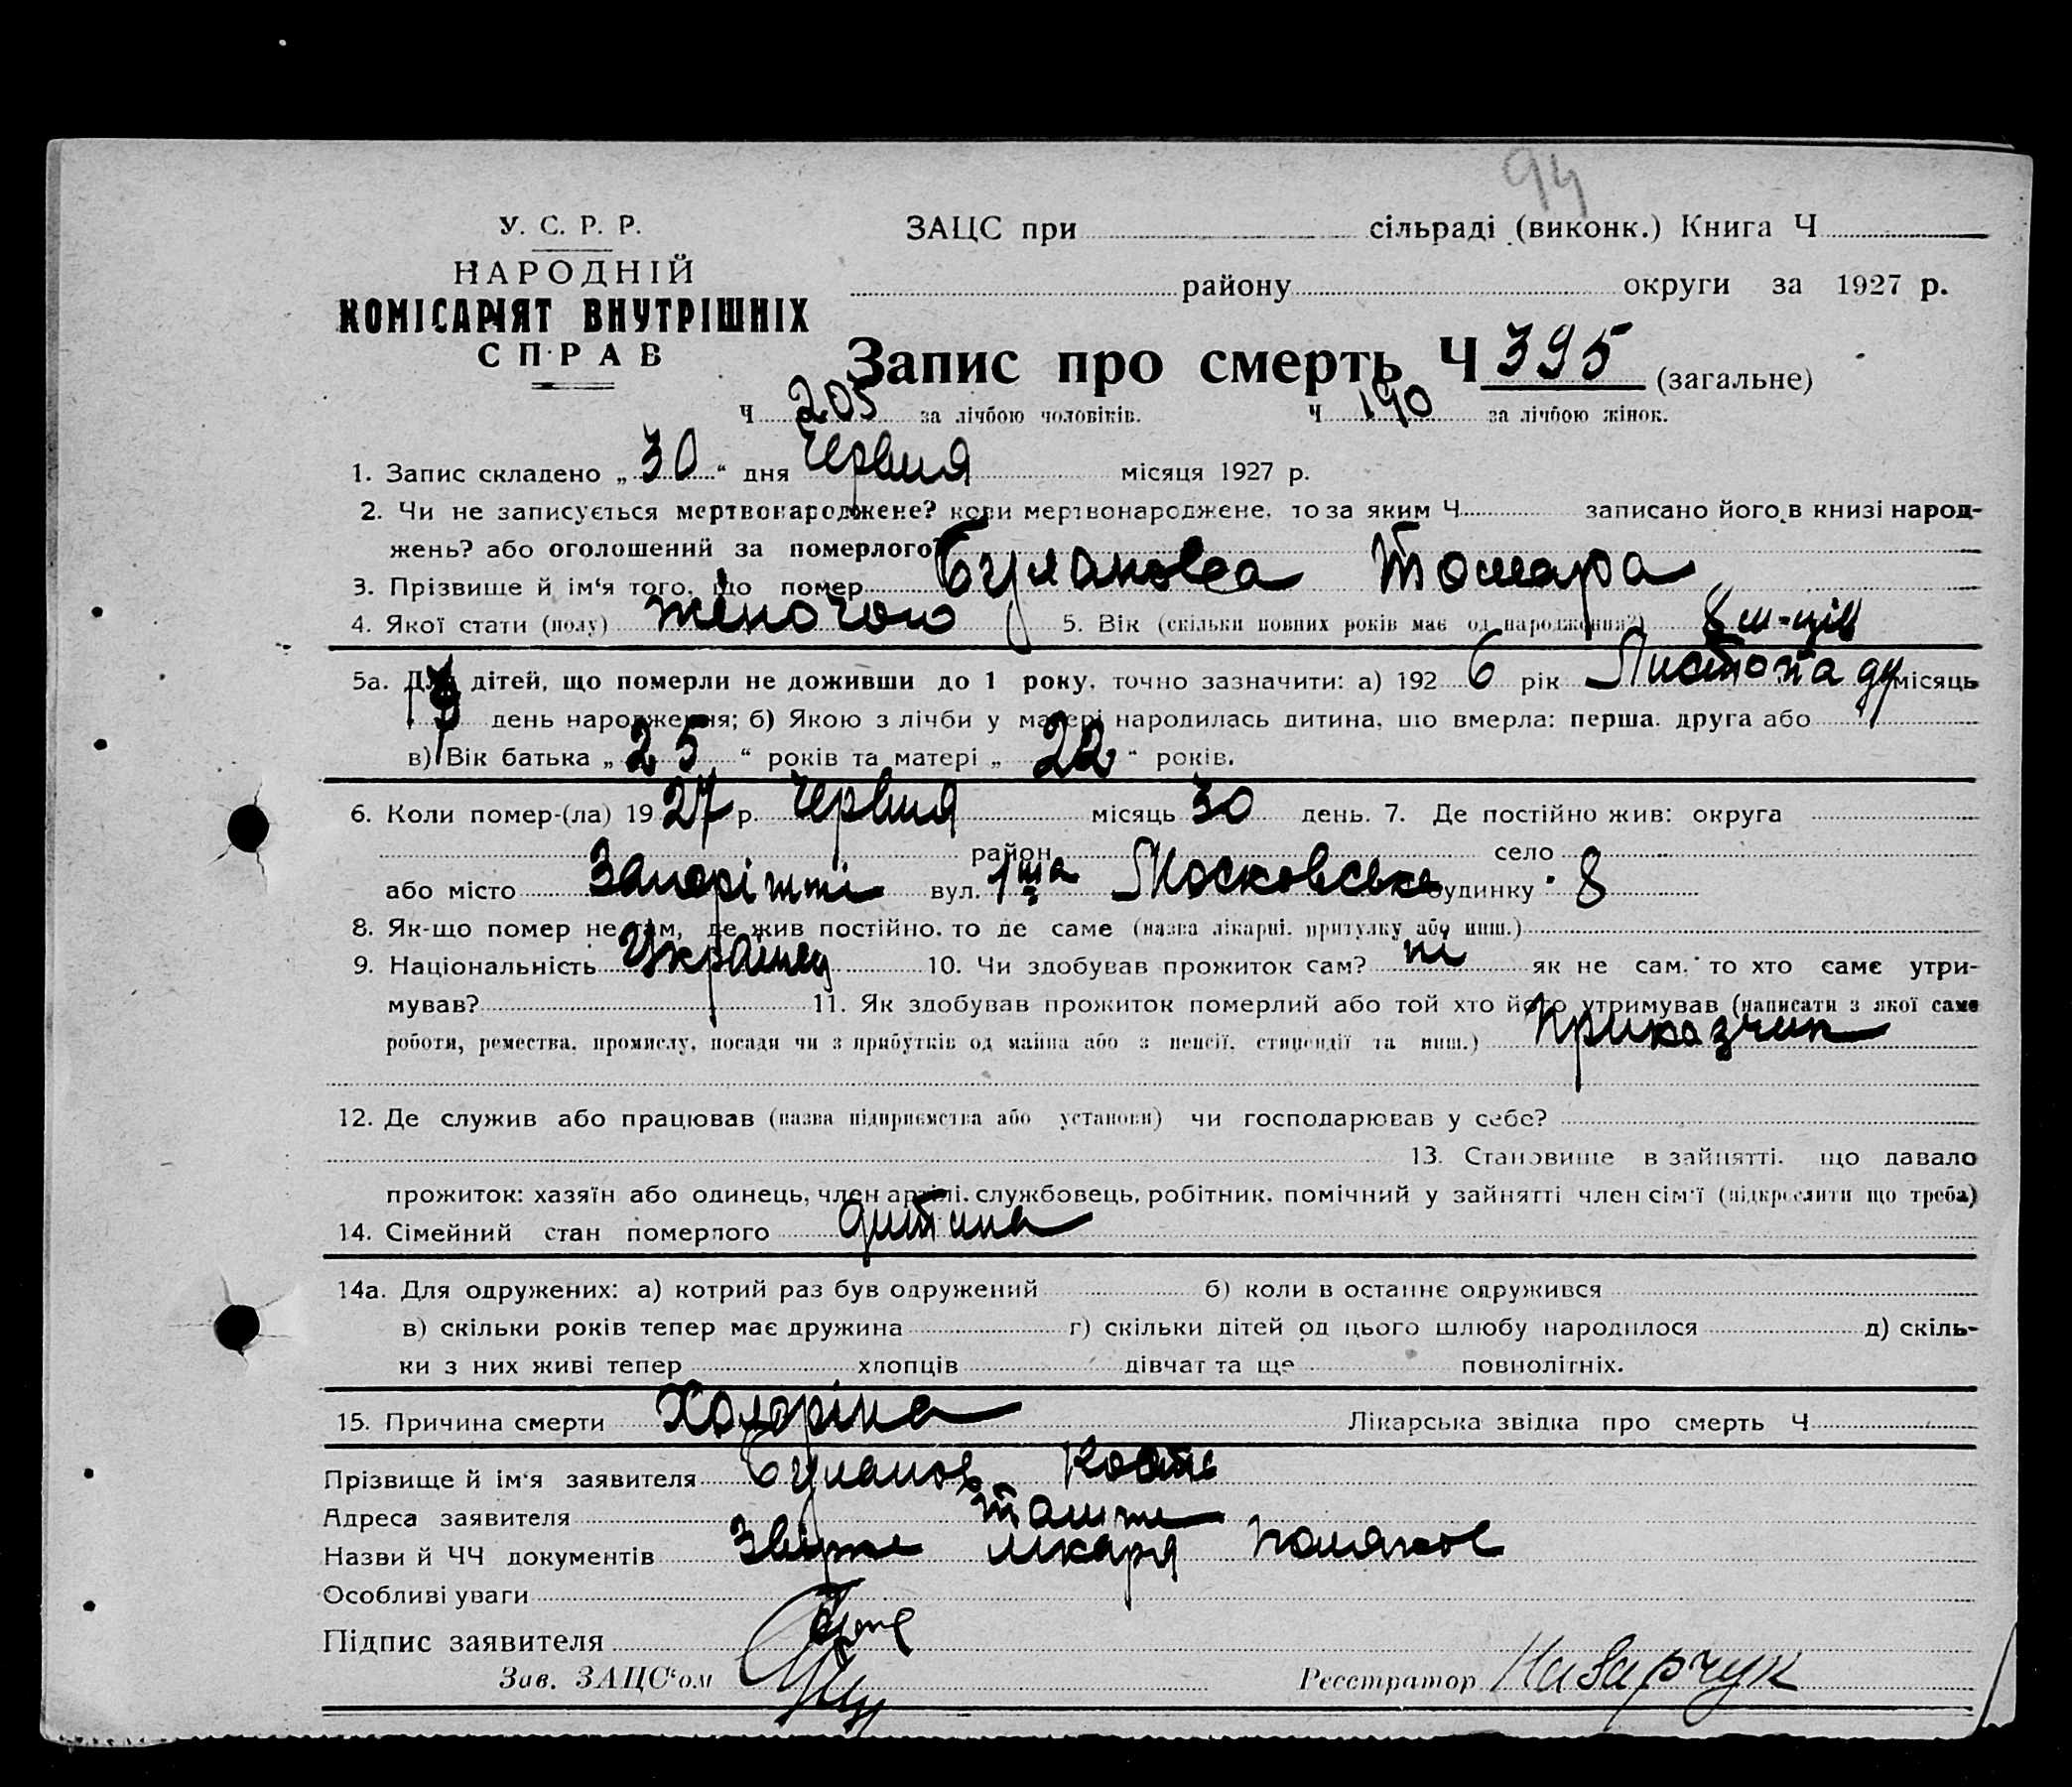 94
У. С. Р. Р.
НАРОДНІЙ
КОМІСАРІЯТ ВНУТРІШНІХ
СПРАВ
ЗАЦС при сільраді (виконк.) Книга Ч
району округи за 1927 р.
Запис про смерть Ч 395 (загальне)
Ч 205 за лічбою чоловіків. Ч 190 за лічбою жінок.
1. Запис складено „ 30 “ дня Червня місяця 1927 р.
2. Чи не записується мертвонароджене? коли мертвонароджене, то за яким Ч записано його в книзі народ-
жень? або оголошений за померлого?
3. Прізвище й ім‘я того, що помер Буланова Томара
4. Якої стати (полу) женочою 5. Вік (скільки повних років має од народження?) 8 м-ців
5а. Для дітей, що померли не доживши до 1 року, точно зазначити: а) 192 6 рік Листопаду місяць
день народження; б) Якою з лічби у матері народилась дитина, що вмерла: перша, друга або
в) Вік батька „ 25 “ років та матері „ 22 “ років.
6. Коли помер-(ла) 19 27 р. Червня місяць 30 день. 7. Де постійно жив: округа
район село
або місто Запоріжжі вул. 1ша Московська будинку 8
8. Як-що помер не там, де жив постійно, то де саме (назва лікарні, притулку або инш.)
9. Національність Українец 10. Чи здобував прожиток сам? ні як не сам, то хто саме утри-
мував? 11. Як здобував прожиток померлий або той хто його утримував (написати з якої саме
роботи, ремества, промислу, посади чи з прибутків од майна або з пенсії, стипендії та инш.) Приказчик
12. Де служив або працював (назва підприємства або установи) чи господарював у себе?
13. Становище в зайнятті, що давало
прожиток: хазяїн або одинець, член артілі, службовець, робітник, помічний у зайнятті член сім‘ї (підкреслити що треба)
14. Сімейний стан померлого дитина
14а. Для одружених: а) котрий раз був одружений б) коли в останнє одружився
в) скільки років тепер має дружина г) скільки дітей од цього шлюбу народилося д) скіль-
ки з них живі тепер хлопців дівчат та ще повнолітніх.
15. Причина смерти Холоріна Лікарська звідка про смерть Ч
Прізвище й ім‘я заявителя Буланов
Адреса заявителя там же
Назви й ЧЧ документів лікаря
Особливі уваги
Підпис заявителя
Зав. ЗАЦС‘ом
Реєстратор Назарчук